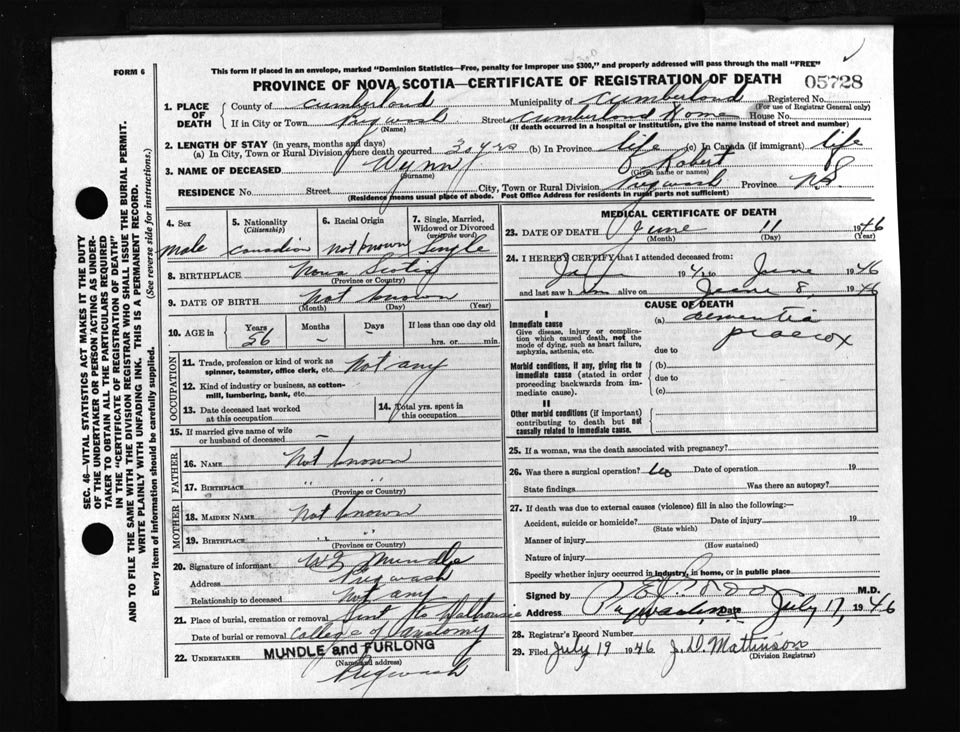 FORM 6
This form if placed in an envelope, marked "Dominion Statistics—Free, penalty for improper use $300," and properly addressed will pass through the mail "FREE"
PROVINCE OF NOVA SCOTIA—CERTIFICATE OF REGISTRATION OF DEATH
05728
1. PLACE OF DEATH
County of Cumberland Municipality of Cumberland Registered No.
(For use of Registrar General only)
If in City or Town Pugwash Street Cumberland Home House No.
(Name) (If death occurred in a hospital or institution, give the name instead of street and number)
2. LENGTH OF STAY (in years, months and days)
(a) In City, Town or Rural Division where death occurred 30 yrs (b) In Province life (c) In Canada (if immigrant) life
3. NAME OF DECEASED Wynn Robert
(Surname) (Given name or names)
RESIDENCE No. Street City, Town or Rural Division Pugwash Province N.S.
(Residence means usual place of abode. Post Office Address for residents in rural parts not sufficient)
4. Sex male
5. Nationality (Citizenship) Canadian
6. Racial Origin not known
7. Single, Married, Widowed or Divorced (write the word) Single
8. BIRTHPLACE Nova Scotia
(Province or Country)
9. DATE OF BIRTH not known
(Month) (Day) (Year)
10. AGE in Years Months Days If less than one day old
56 – – hrs. or min.
OCCUPATION
11. Trade, profession or kind of work as spinner, teamster, office clerk, etc. not any
12. Kind of industry or business, as cotton-mill, lumbering, bank, etc.
13. Date deceased last worked at this occupation
14. Total yrs. spent in this occupation
15. If married give name of wife or husband of deceased –
FATHER
16. NAME not known
17. BIRTHPLACE " "
(Province or Country)
MOTHER
18. MAIDEN NAME not known
19. BIRTHPLACE " "
(Province or Country)
20. Signature of informant Mundle
Address Pugwash
Relationship to deceased not any
21. Place of burial, cremation or removal Sent to Dalhousie
Date of burial or removal College of Anatomy
22. UNDERTAKER MUNDLE and FURLONG
(Name and address)
Pugwash
MEDICAL CERTIFICATE OF DEATH
23. DATE OF DEATH June 11 1946
(Month) (Day) (Year)
24. I HEREBY CERTIFY that I attended deceased from:
19 to June 1946
and last saw h im alive on June 8, 1946
CAUSE OF DEATH
I
Immediate cause (a) dementia praecox
Give disease, injury or complication which caused death, not the mode of dying, such as heart failure, asphyxia, asthenia, etc.
due to
Morbid conditions, if any, giving rise to immediate cause (stated in order proceeding backwards from immediate cause).
(b)
due to
(c)
II
Other morbid conditions (if important) contributing to death but not causally related to immediate cause.
25. If a woman, was the death associated with pregnancy?
26. Was there a surgical operation? no Date of operation 19
State findings Was there an autopsy?
27. If death was due to external causes (violence) fill in also the following:—
Accident, suicide or homicide? Date of injury 19
(State which)
Manner of injury
(How sustained)
Nature of injury
Specify whether injury occurred in industry, in home, or in public place
Signed by M.D.
Address Pugwash Date July 17, 1946
28. Registrar's Record Number
29. Filed July 19 1946 J. D. Mattinson
(Division Registrar)
SEC. 46—VITAL STATISTICS ACT MAKES IT THE DUTY
OF THE UNDERTAKER OR PERSON ACTING AS UNDER-
TAKER TO OBTAIN ALL THE PARTICULARS REQUIRED
IN THE "CERTIFICATE OF REGISTRATION OF DEATH"
AND TO FILE THE SAME WITH THE DIVISION REGISTRAR WHO SHALL ISSUE THE BURIAL PERMIT.
WRITE PLAINLY WITH UNFADING INK. THIS IS A PERMANENT RECORD.
Every item of Information should be carefully supplied. (See reverse side for instructions.)